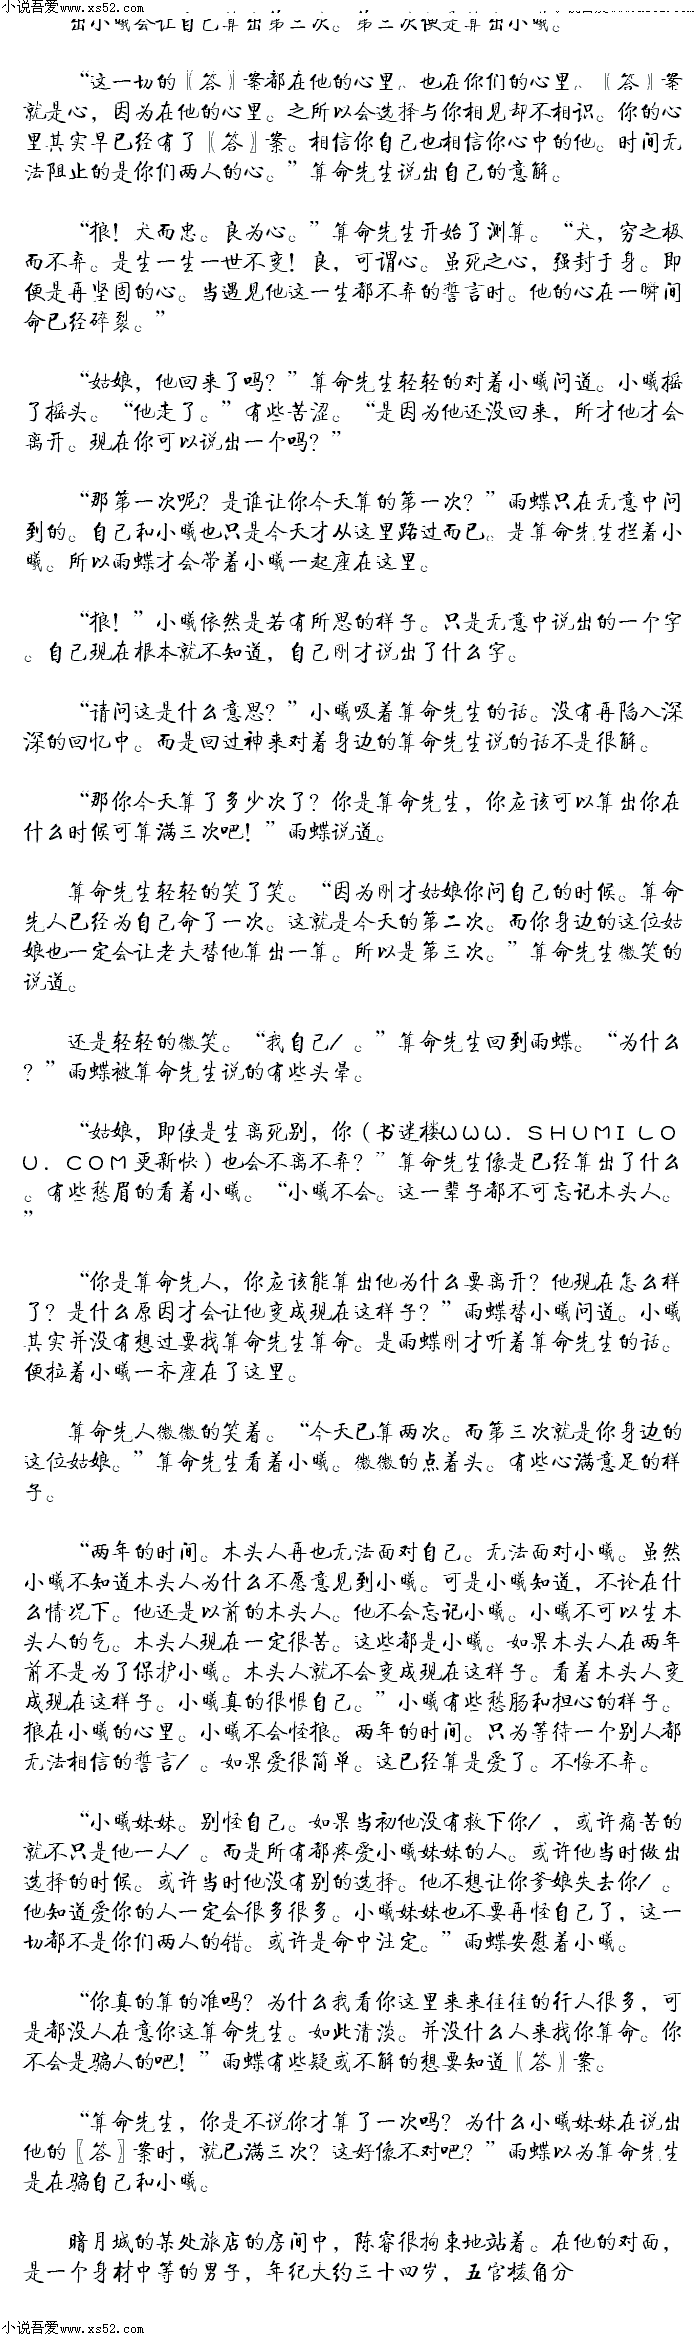 小说吾爱www.xs52.com
小说吾爱www.xs52.com
出小曦会让自己算出第三次。第三次便是算出小曦。
“这一切的〖答〗案都在他的心里。也在你们的心里。〖答〗案
就是心，因为在他的心里。之所以会选择与你相见却不相识。你的心
里其实早已经有了〖答〗案。相信你自己也相信你心中的他。时间无
法阻止的是你们两人的心。”算命先生说出自己的意解。
“狼！犬而忠。良为心。”算命先生开始了测算。“犬，穷之极
而不弃。是生一生一世不变！良，可谓心。虽死之心，强封于身。即
便是再坚固的心。当遇见他这一生都不弃的誓言时。他的心在一瞬间
命已经碎裂。”
“姑娘，他回来了吗？”算命先生轻轻的对着小曦问道。小曦摇
了摇头。“他走了。”有些苦涩。“是因为他还没回来，所才他才会
离开。现在你可以说出一个吗？”
“那第一次呢？是谁让你今天算的第一次？”雨蝶只在无意中问
到的。自己和小曦也只是今天才从这里路过而已。是算命先生拦着小
曦。所以雨蝶才会带着小曦一起座在这里。
“狼！”小曦依然是若有所思的样子。只是无意中说出的一个字
。自己现在根本就不知道，自己刚才说出了什么字。
“请问这是什么意思？”小曦吸着算命先生的话。没有再陷入深
深的回忆中。而是回过神来对着身边的算命先生说的话不是很解。
“那你今天算了多少次了？你是算命先生，你应该可以算出你在
什么时候可算满三次吧！”雨蝶说道。
算命先生轻轻的笑了笑。“因为刚才姑娘你问自己的时候。算命
先人已经为自己命了一次。这就是今天的第二次。而你身边的这位姑
娘也一定会让老夫替他算出一算。所以是第三次。”算命先生微笑的
说道。
还是轻轻的微笑。“我自己/。”算命先生回到雨蝶。“为什么
？”雨蝶被算命先生说的有些头晕。
“姑娘，即使是生离死别，你（书迷楼WWW．SHUMILO
U．COM更新快）也会不离不弃？”算命先生像是已经算出了什么
。有些愁眉的看着小曦。“小曦不会。这一辈子都不可忘记木头人。
”
“你是算命先人，你应该能算出他为什么要离开？他现在怎么样
了？是什么原因才会让他变成现在这样子？”雨蝶替小曦问道。小曦
其实并没有想过要找算命先生算命。是雨蝶刚才听着算命先生的话。
便拉着小曦一齐座在了这里。
算命先人微微的笑着。“今天已算两次。而第三次就是你身边的
这位姑娘。”算命先生看着小曦。微微的点着头。有些心满意足的样
子。
“两年的时间。木头人再也无法面对自己。无法面对小曦。虽然
小曦不知道木头人为什么不愿意见到小曦。可是小曦知道，不论在什
么情况下。他还是以前的木头人。他不会忘记小曦。小曦不可以生木
头人的气。木头人现在一定很苦。这些都是小曦。如果木头人在两年
前不是为了保护小曦。木头人就不会变成现在这样子。看着木头人变
成现在这样子。小曦真的很恨自己。”小曦有些愁肠和担心的样子。
狼在小曦的心里。小曦不会怪狼。两年的时间。只为等待一个别人都
无法相信的誓言/。如果爱很简单。这已经算是爱了。不悔不弃。
“小曦妹妹。别怪自己。如果当初他没有救下你/，或许痛苦的
就不只是他一人/。而是所有都疼爱小曦妹妹的人。或许他当时做出
选择的时候。或许当时他没有别的选择。他不想让你爹娘失去你/。
他知道爱你的人一定会很多很多。小曦妹妹也不要再怪自己了，这一
切都不是你们两人的错。或许是命中注定。”雨蝶安慰着小曦。
“你真的算的准吗？为什么我看你这里来来往往的行人很多，可
是都没人在意你这算命先生。如此清淡。并没什么人来找你算命。你
不会是骗人的吧！”雨蝶有些疑或不解的想要知道〖答〗案。
“算命先生，你是不说你才算了一次吗？为什么小曦妹妹在说出
他的〖答〗案时，就已满三次？这好像不对吧？”雨蝶以为算命先生
是在骗自己和小曦。
暗月城的某处旅店的房间中，陈容很拘束地站着。在他的对面，
是一个身材中等的男子，年纪大约三十四岁，五官棱角分
小说吾爱www.xs52.com